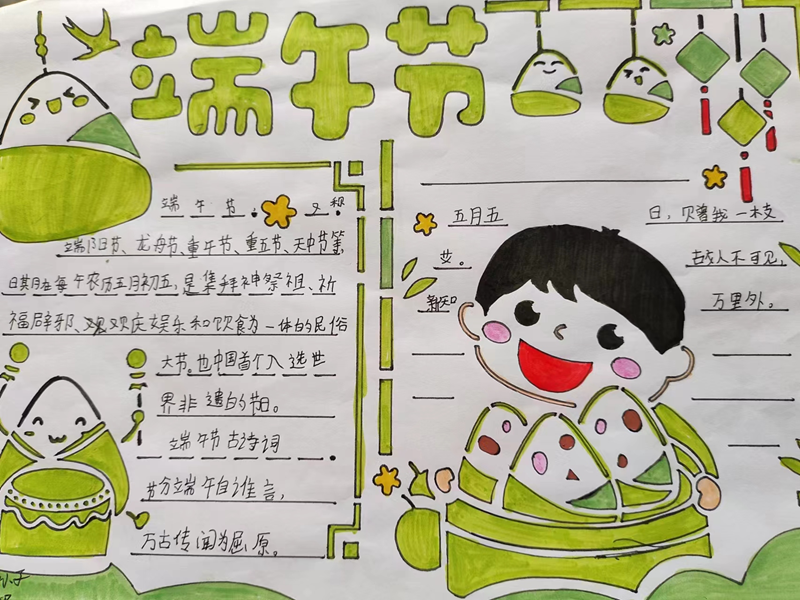 端午节
端午节, 又称
端阳日节、龙舟节、重午节、重五节、天中节等
日其月在每年农历五月初五,是集拜神祭祖、祈
福辟邪、欢庆娱乐和饮食为一体的民俗
大节。也中国首个入选世
界非遗的节日。
端午节古诗词
节分端午自谁言,
万古传闻为屈原。
五月五日,贝曾我一本支
艾。古欠人不可见,
新知万里外。